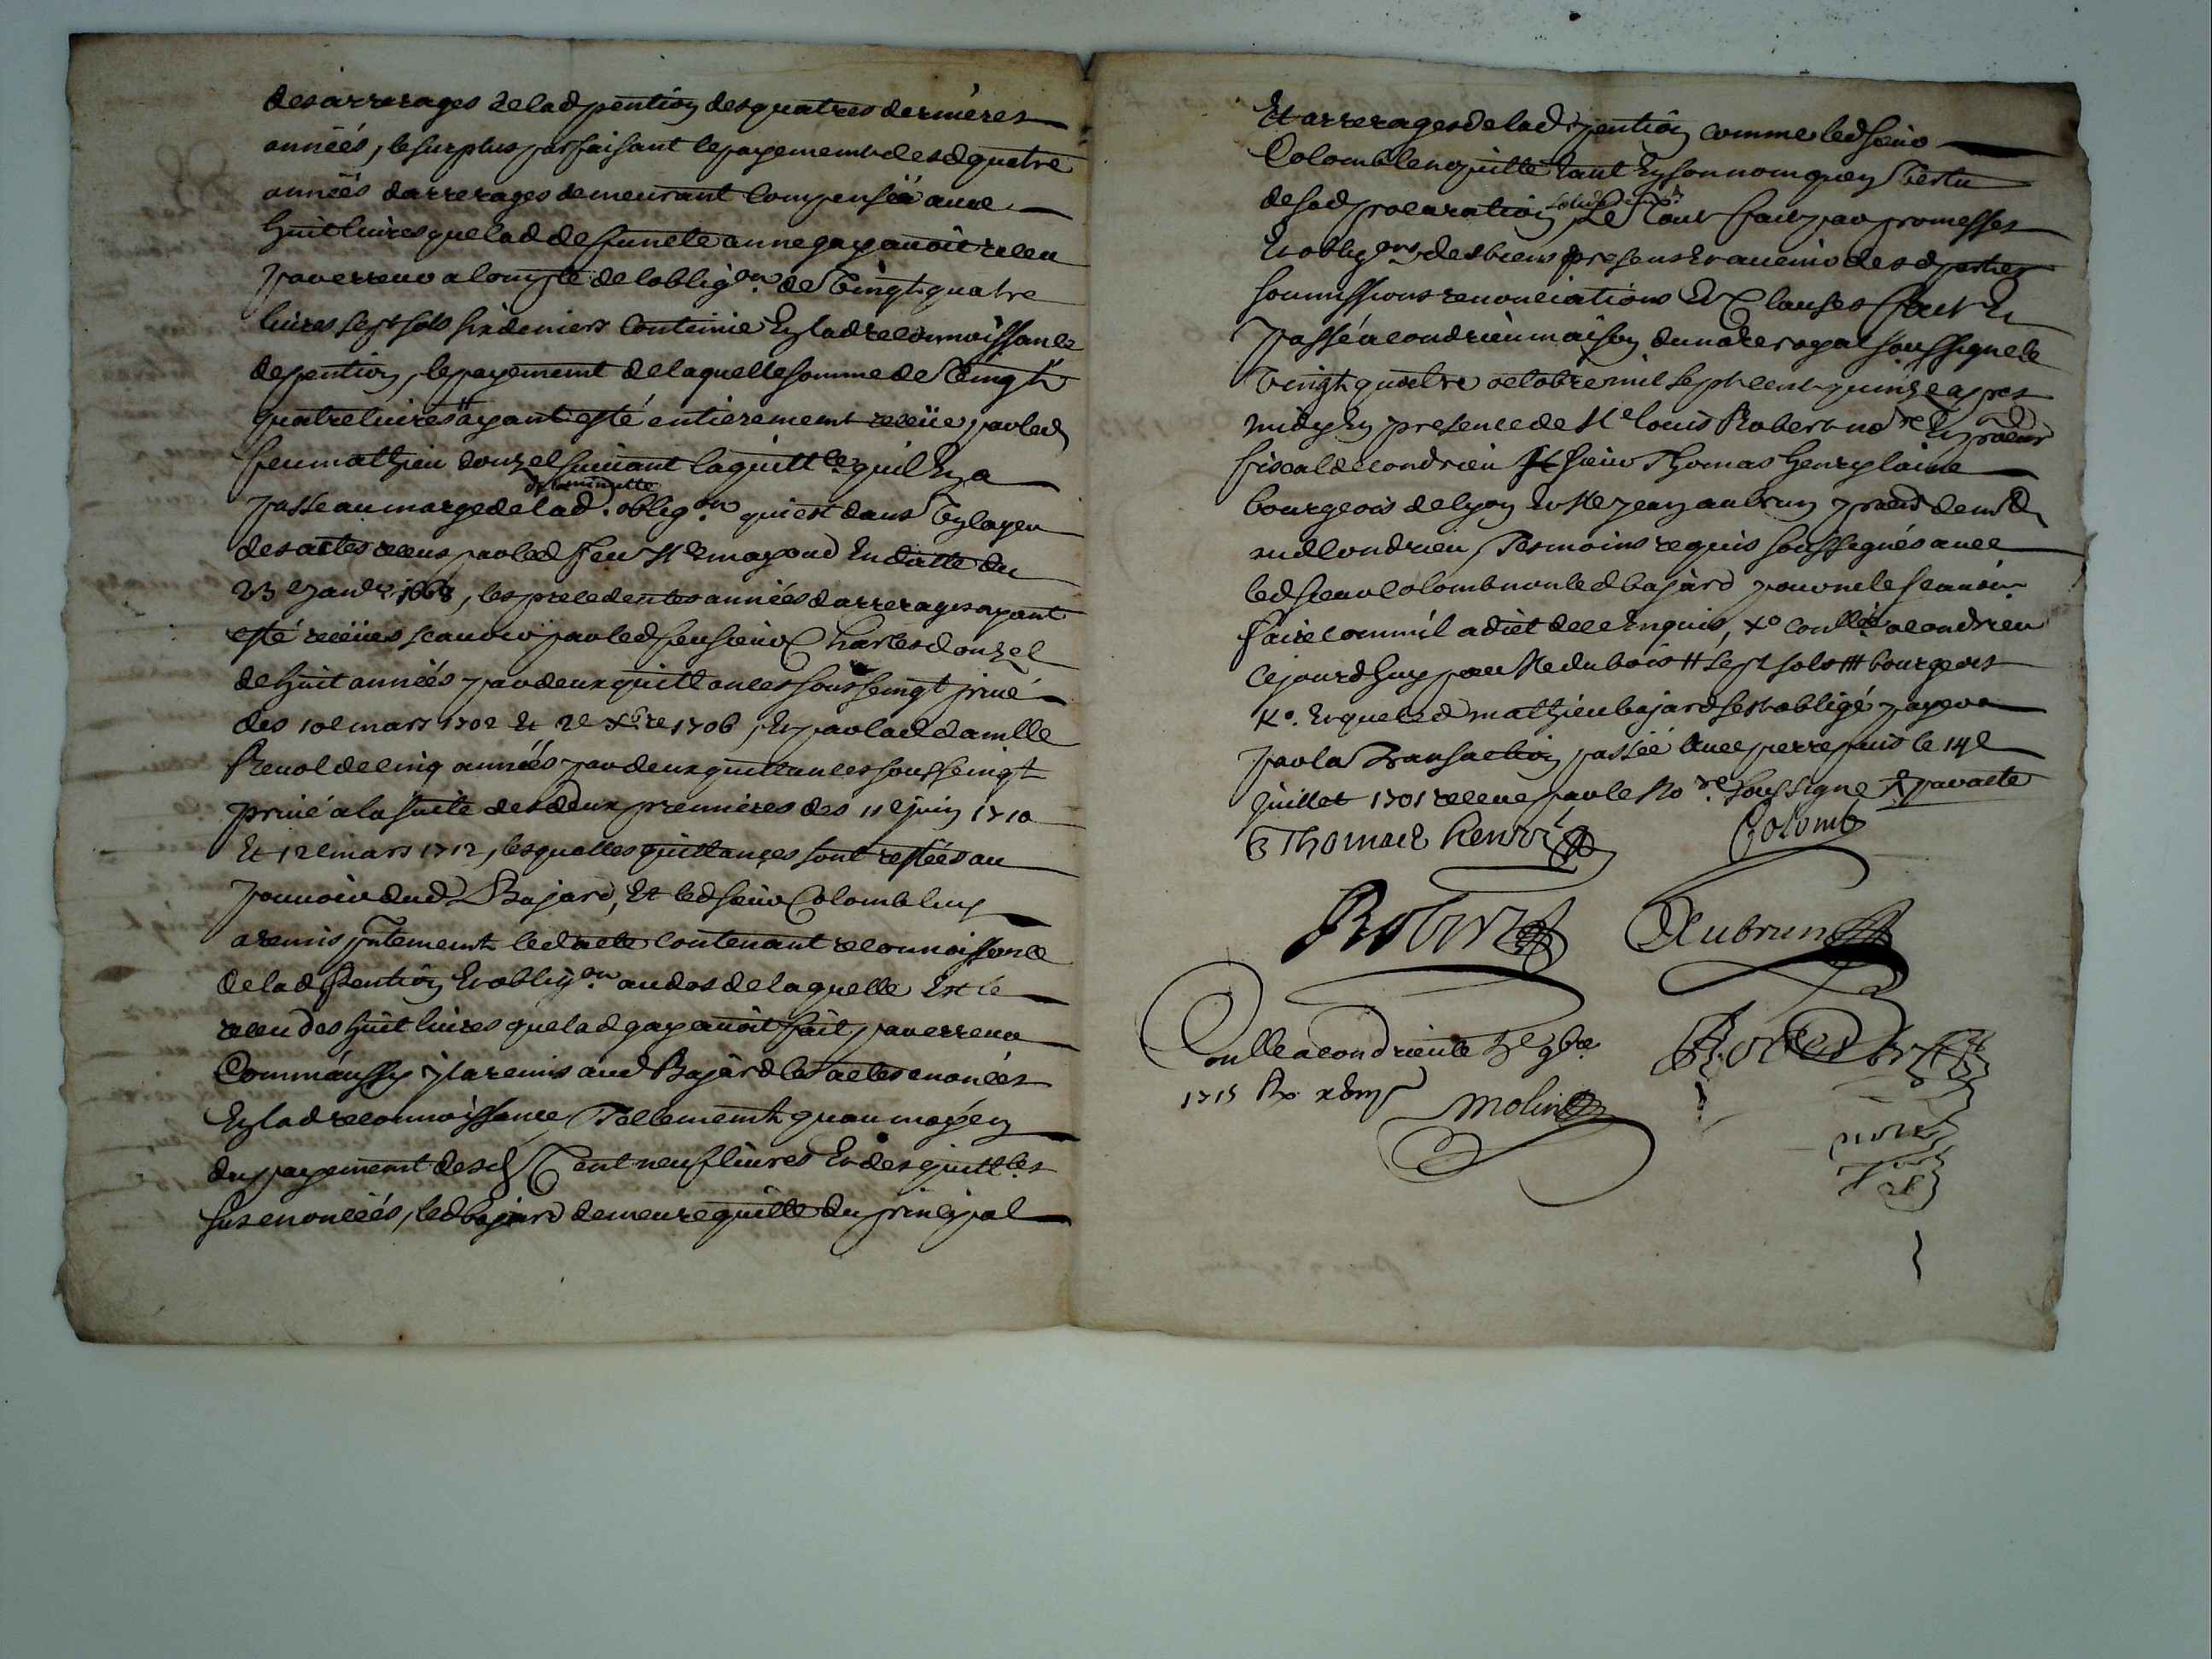 des arrerages de lad pention des quatres dernieres
années, le surplus parfaisant le payement desd quatre
années darrerages demeurant compensée avec
huit livres que lad deffuncte anne gay avoit receu
par erreur a compte de lobligon de vingt quatre
livres sept sols six deniers contenue en lad reconnoissance
de pention, le payement de laquelle somme de vingt
quatre livres # ayant esté entierement receüe par led
feu mathieu donzel suivant la quittce quil en a
de la minutte
passé au marge de lad. obligon qui est dans
des actes receus par led feu Me mayoud en datte du
23e janvr 1668, les precedentes années darrerages ayant
esté receües scavoir par led feu sieur Charles donzel
de huit années par deux quittances sous seingt privé
des 10e mars 1702 et 2e xbre 1706, et par lad damlle
Revol de cinq années par deux quittances sous seingt
privé a la suite desd deux premieres des 11e juin 1710
Et 12e mars 1712, lesquelles quittances sont restées au
pouvoir dud Bajard, Et led sieur Colomb luy
a remis pntement led acte contenant reconnoissance
de lad Pention et obligon au dos de laquelle est le
receu des huit livres que lad gay avoit fait par erreur
Comm'aussy il a remis aud Bajard les actes enoncés
En lad reconnoissance, Tellement quau moyen
du payement desd Cent neuf livres et des quittces
sus enoncées, led bajard demeure quitte du principal
Et arrerages de lad pention comme led sieur
Colomb len quitte tant en son nom quen vertu
de sad procuration Le tout fait par promesses
et obligons des biens presens et avenir desd parties
soumissions renonciations et Clauses fait et
Passé a condrieu maison du notre royal soussigné le
vingt quatre octobre mil sept cent quinze apres
midy en presence de Me louis Robert nore et procur
fiscal de condrieu sieur Thomas henry laine
bourgeois de lyon et Me jean aubrun
aud Condrieu, Tesmoins requis soussignés avec
led sieur Colomb non led bajard pour ne le scavoir
faire comm'il a dict de ce enquis, xo Conllé a condrieu
ce jourdhuy par Me dubois # sept sols ## bourgeois
xo. et que led mathieu bajard sest obligé payer
par la Transaction passée avec pierre le 14e
juillet 1701 receue par le Nore soussigné par acte
Thomas henri Colomb
Robert Aubrun
Conllé a condrieu le 7e 9bre
1715 Rx
Molin